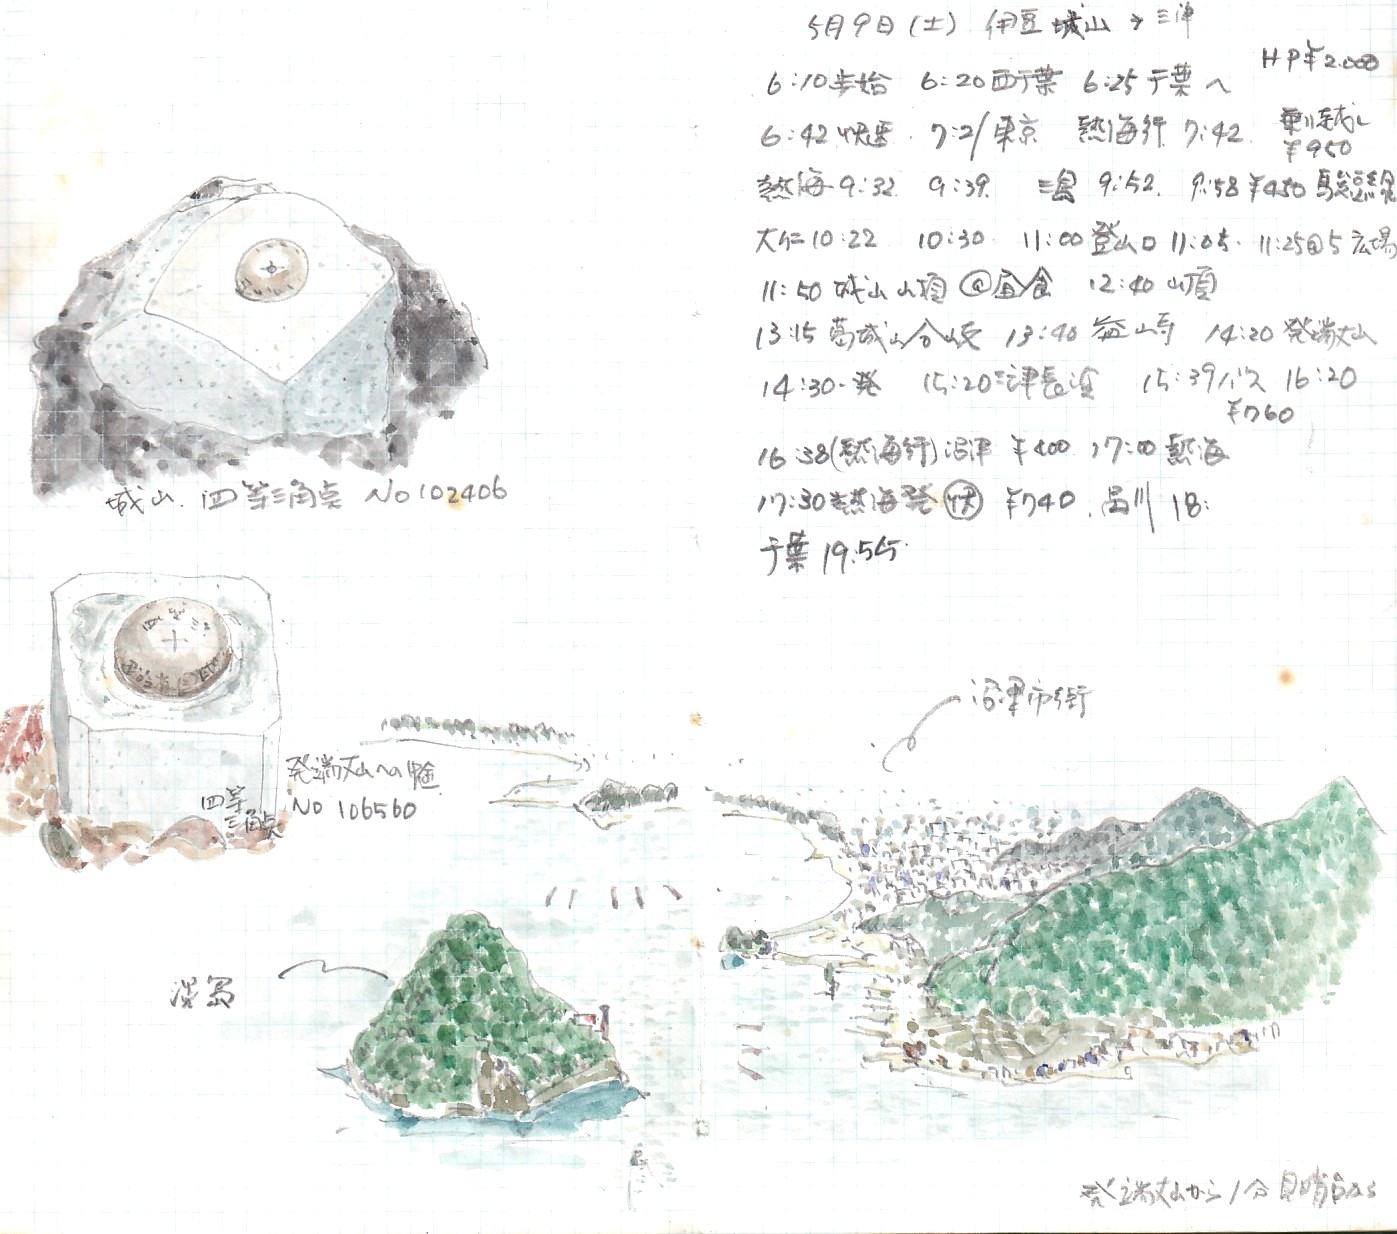 5月9日(土) 伊豆城山→三津
HP¥2.000
6:10歩始 6:20西千葉 6:25千葉へ
6:42快速 7:21東京 熱海行 7:42 乗り越し ¥950
熱海9:32 9:39 三島 9:52 9:58 ¥450 駿豆線
大仁10:22 10:30 11:00登山口11:05 11:25 広場
11:50城山山頂@昼食 12:40山頂
13:15葛城山分岐 13:40益山寺 14:20発端丈山
14:30発 15:20三津長浜 15:39バス 16:20
¥760
16:38(熱海行)沼津 ¥400 17:00熱海
17:30熱海発 快 ¥740. 品川 18:
千葉 19:55
城山.四等三角点 No102406
発端丈山への途
No 106560
四等
三角点
沼津市街
淡島
発端丈山から1分 見晴台から